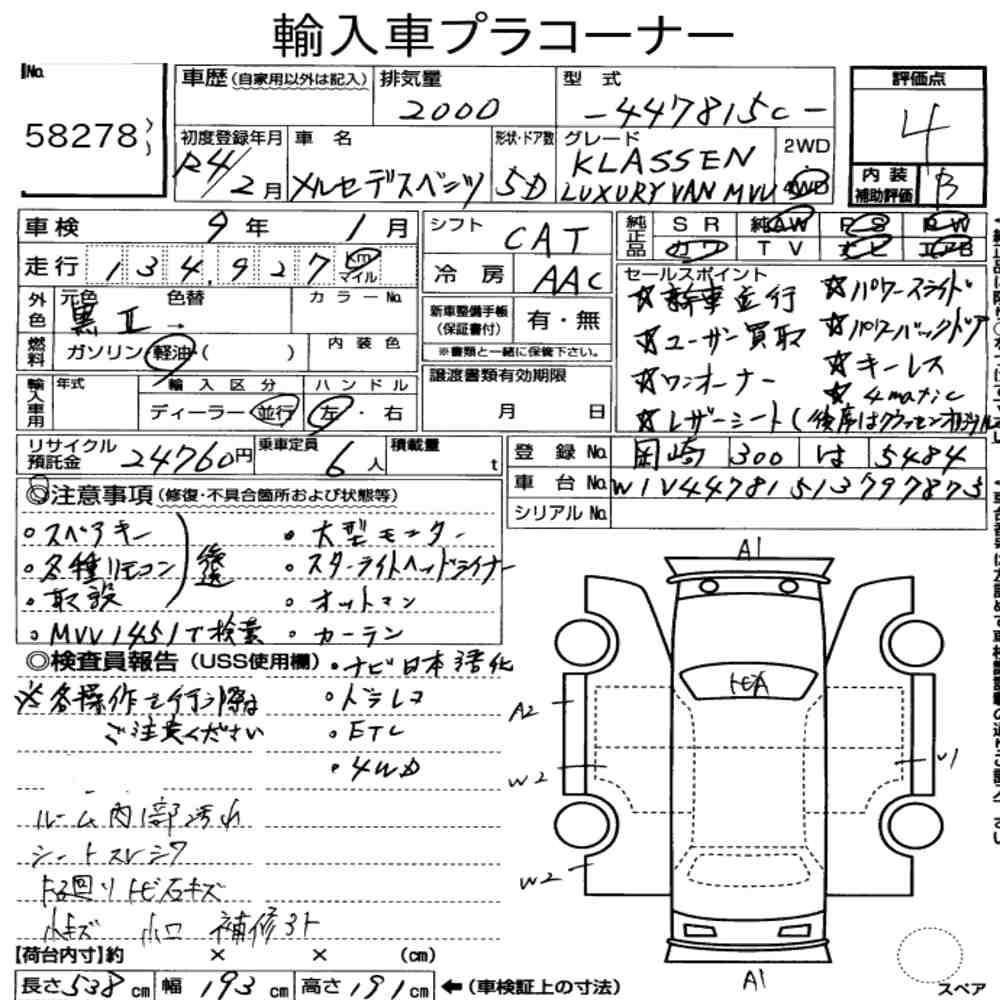 輸入車プラコーナー
No.
58278
車歴(自家用以外は記入)
排気量
2000
型 式
-447815c-
評価点
4
初度登録年月
R4/2月
車 名
メルセデスベンツ
形状・ドア数
5D
グレード
KLASSEN
LUXURY VAN MVV
2WD
4WD
内 装
補助評価
B
車検 9年 1月
走行 134,927 km マイル
外色
元色 色替 カラーNo.
黒 エ →
燃料
ガソリン・軽油・( )
内 装 色
輸入車用
年式
輸 入 区 分
ハ ン ド ル
ディーラー・並行
左・右
シフト
CAT
冷 房
AAC
新車整備手帳
(保証書付)
有・無
※書類と一緒に保管下さい。
譲渡書類有効期限
月 日
純正品
SR 純AW PS PW
カワ TV ナビ エアB
セールスポイント
☆新車並行
☆パワースライド
☆ユーザー買取
☆パワーバックドア
☆ワンオーナー
☆キーレス
☆4matic
☆レザーシート(後席はクラッセンオリジナル
リサイクル
預託金
24760円
乗車定員
6人
積載量
t
登 録 No.
岡崎 300 は 5484
車 台 No.
W1V44781513797875
シリアルNo.
◎注意事項(修復・不具合箇所および状態等)
・スペアキー
・各種リモコン
・取説
後送
・MVV1451で検索
・大型モニター
・スターライトヘッドライナー
・オットマン
・カーテン
◎検査員報告(USS使用欄)
・ナビ日本語化
※各操作を行う際は
ご注意ください
・ドラレコ
・ETC
・4WD
ルーム内1部汚れ
シートスレシワ
下回り トビ石キズ
小キズ 小凹 補修跡
【荷台内寸】約 × × (cm)
長さ538cm
幅 193cm
高さ191cm
←(車検証上の寸法)
A1
A2
W2
W2
U1
A1
スペア